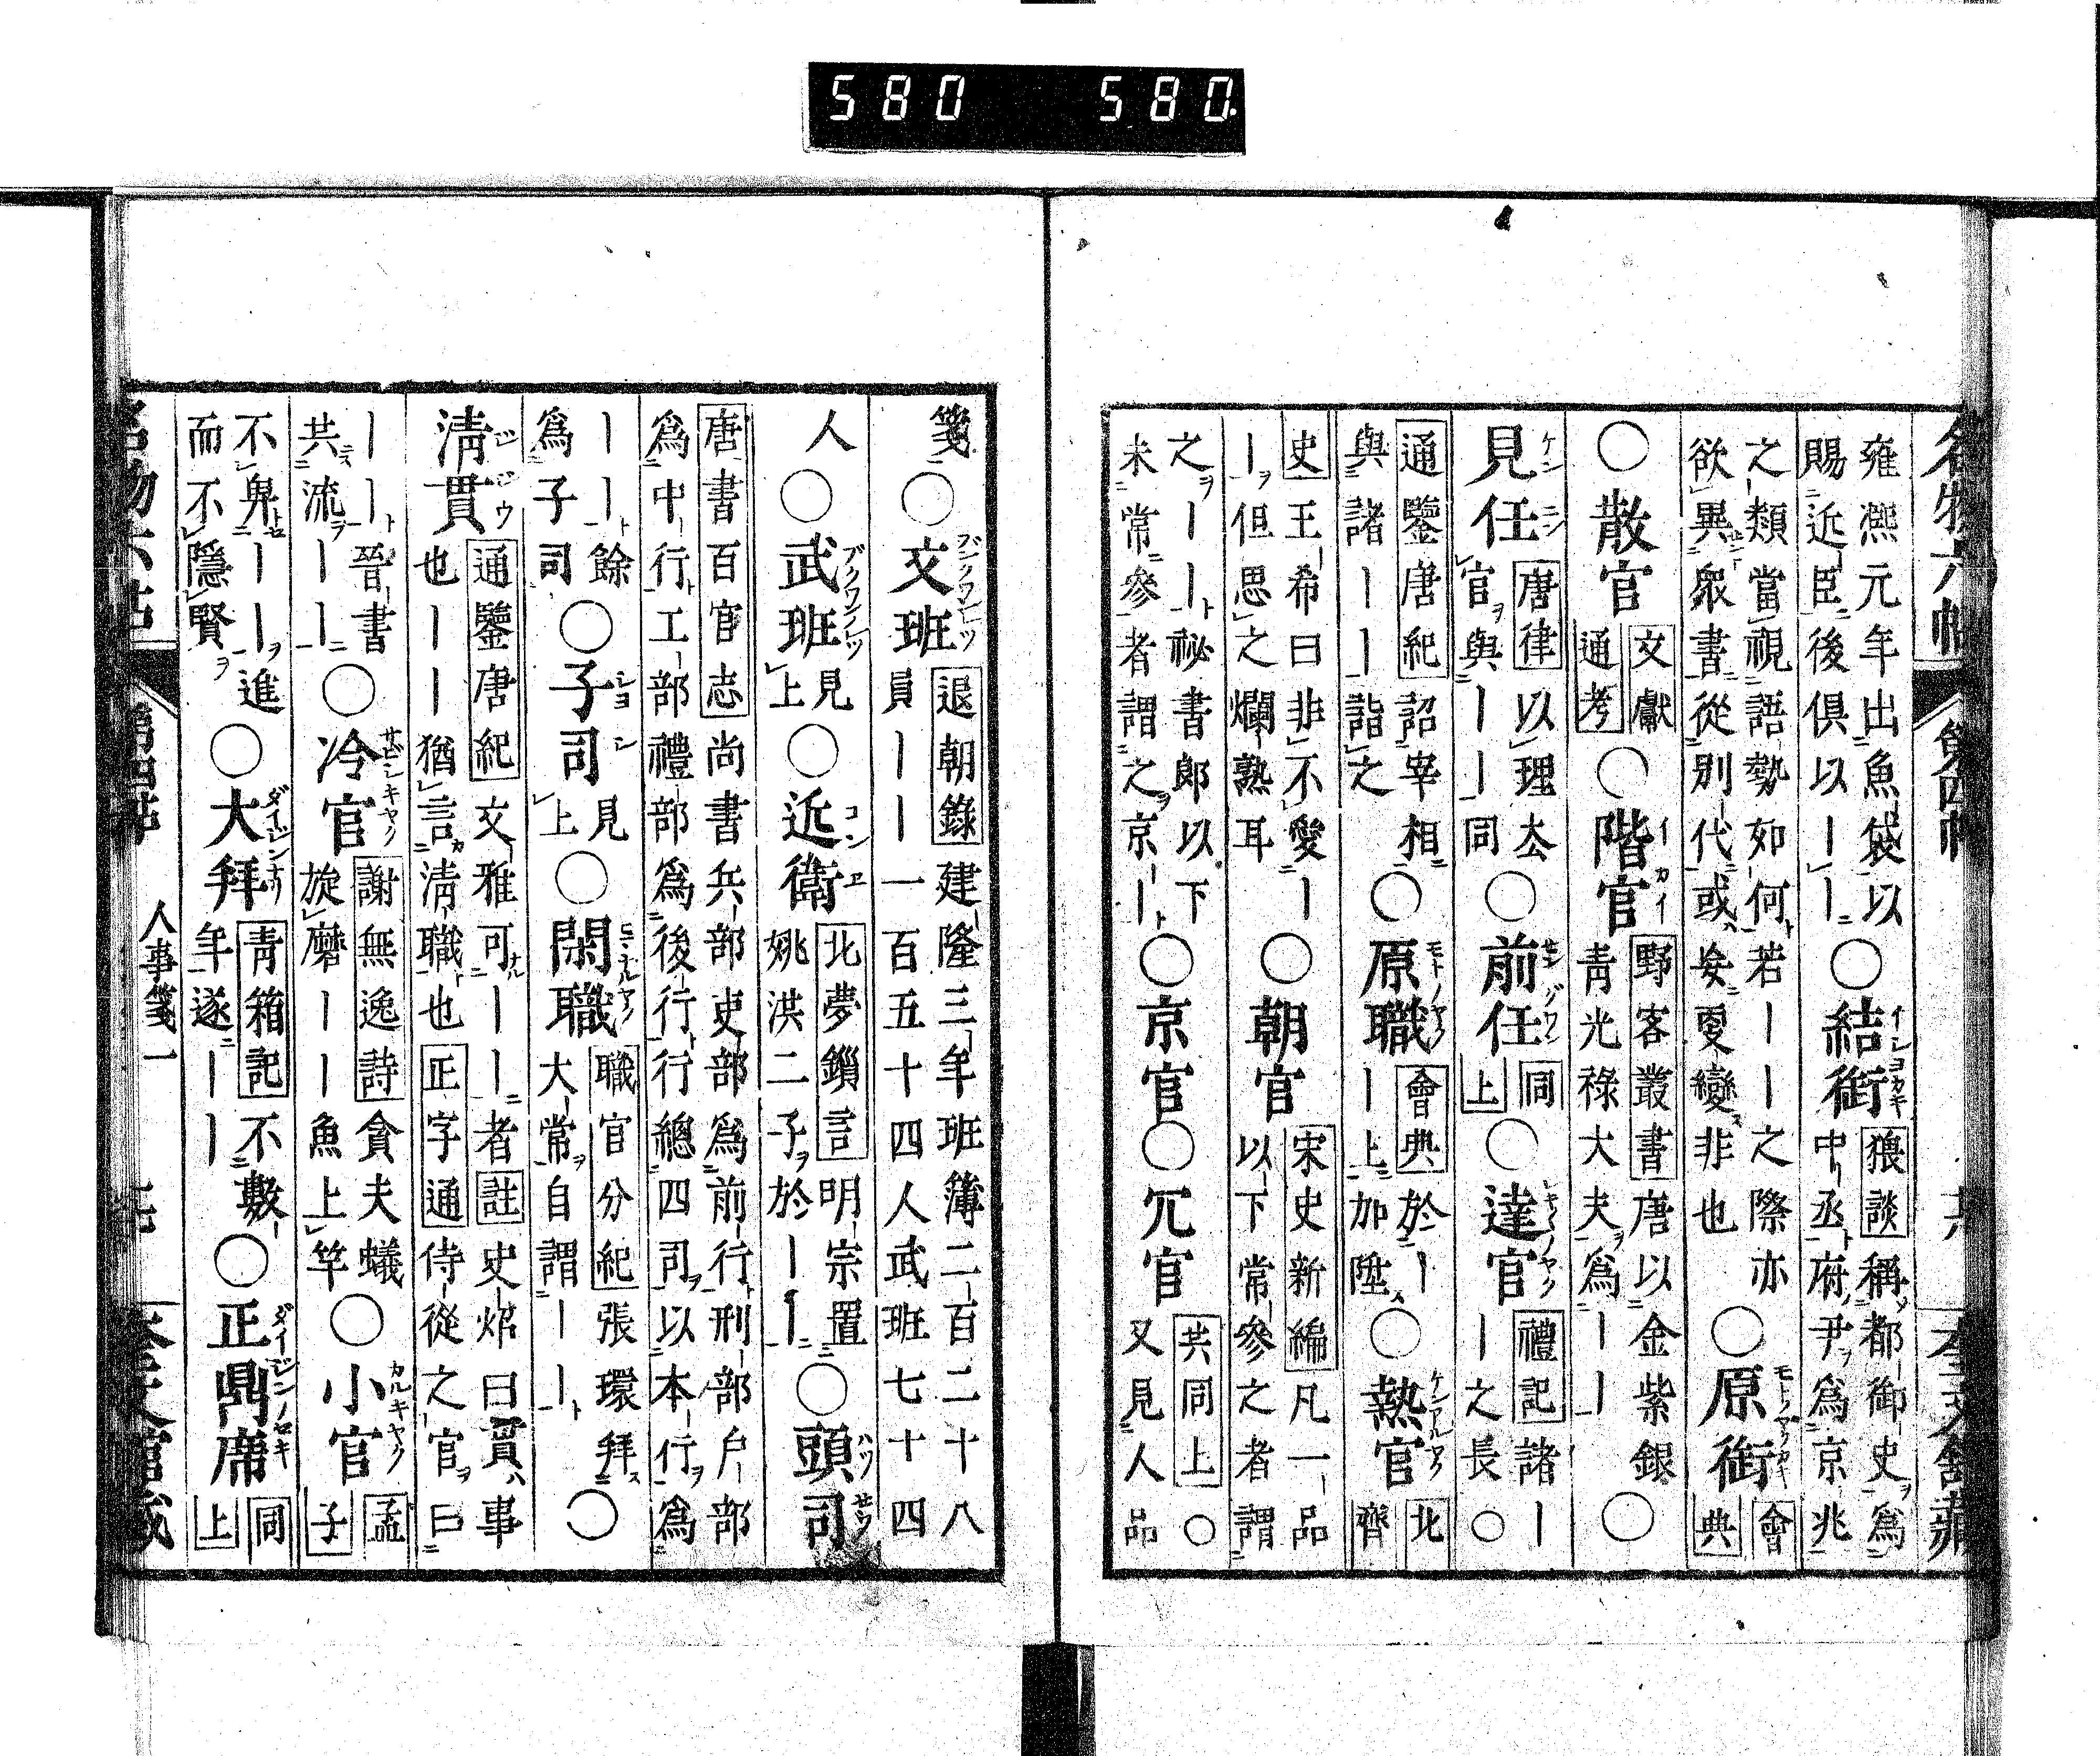 580 580
名物六帖 第四帖 共 奎文館藏
雍凞元年出魚袋以
賜近臣後俱以｜｜
○結銜 猥談 稱都御史爲
中丞府尹爲京兆
之類當視語勢如何若｜｜之際亦
欲異衆書從別代或妄更變非也
○原銜 會典
○散官 文獻通考 ○階官 野客叢書 唐以金紫銀
青光祿大夫爲｜｜ ○
見任 唐律 以理去
官與｜｜同 ○前任 同上 ○達官 禮記 諸｜
｜之長 ○
通鑒唐紀 詔宰相
與諸｜｜詣之 ○原職 會典 於｜
｜上加陞 ○熱官 北齊
史 王希曰非不愛｜
｜但思之爛熟耳 ○朝官 宋史新編 凡一品
以下常參之者謂
之｜｜秘書郎以下
未常參者謂之京｜ ○京官○冗官 共同上 ○
又見人品
箋 ○文班 退朝錄 建隆三年班簿二百二十八
員｜｜一百五十四人武班七十四
人 ○武班 見上 ○近衞 北夢鎻言 明宗置
姚洪二子於｜｜ ○頭司
唐書百官志 尚書兵部吏部爲前行刑部戶部
爲中行工部禮部爲後行行總四司以本行爲
｜｜餘
爲子司 ○子司 見上 ○閑職 職官分紀 張環拜
大常自謂｜｜ ○
清貫 通鑒唐紀 文雅可｜｜者 註 史炤曰貫事
也｜｜猶言清職也 正字通 侍從之官曰
｜｜晉書
共流｜｜ ○冷官 謝無逸詩 貪夫蟻
旋磨｜｜魚上竿 ○小官 孟子
不臯｜｜進
而不隱賢 ○大拜 青箱記 不數
年遂｜｜ ○正鼎席 同上
名物六帖 第四帖 人事箋一 奎文館藏